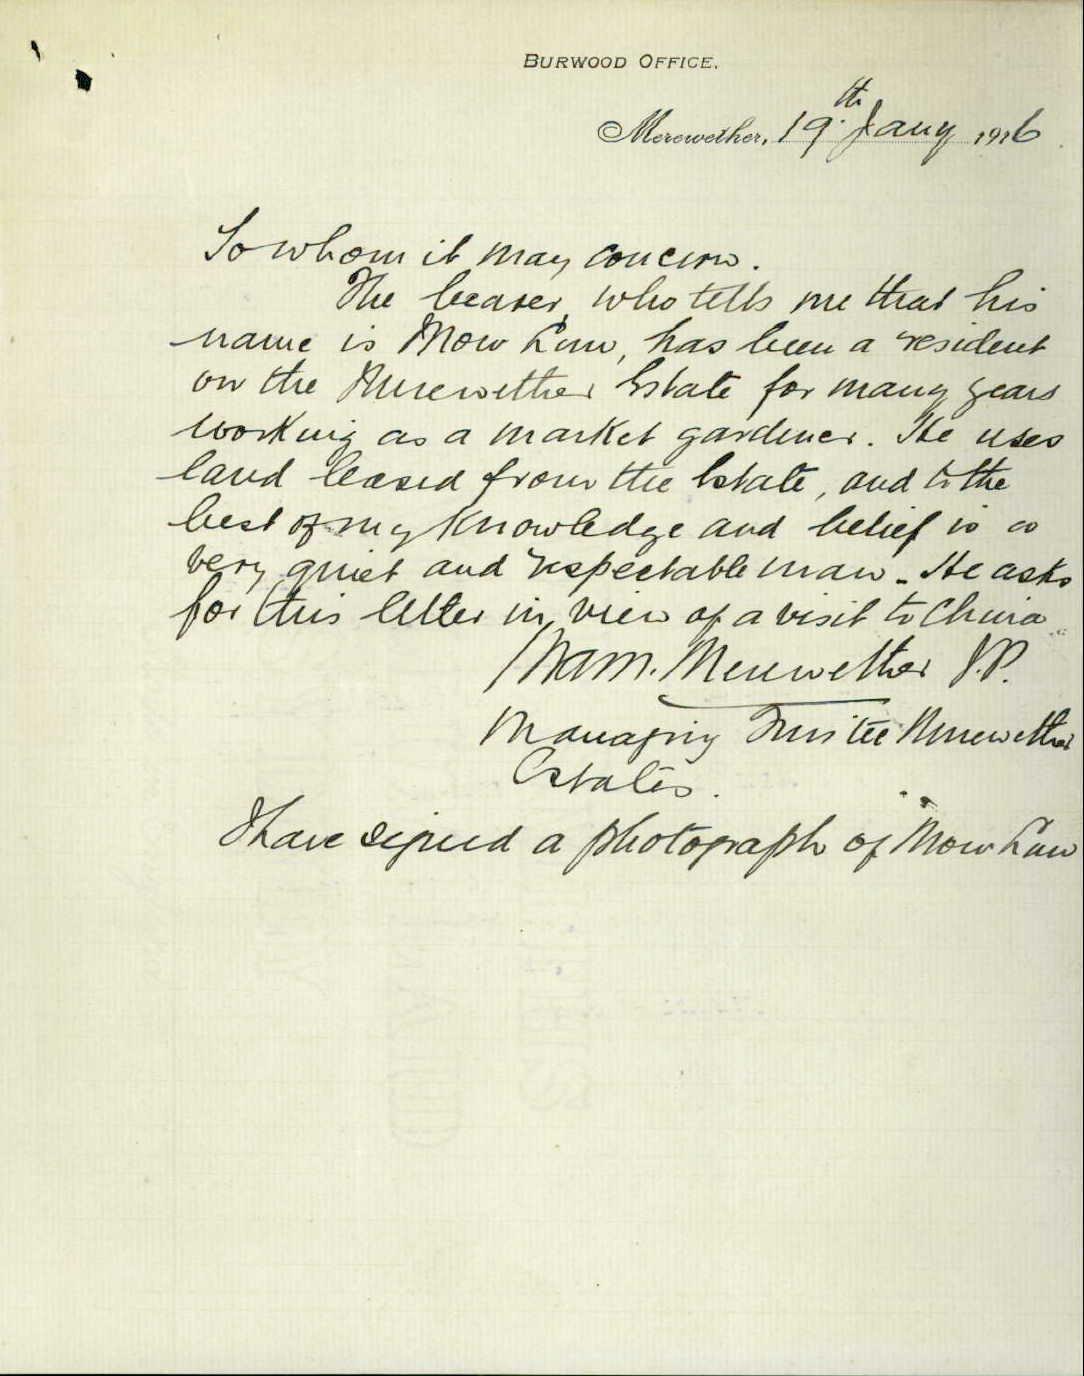 BURWOOD OFFICE.
Merewether, 19th Jany 1916
To whom it may concern.
The bearer, who tells me that his
name is Mow Lum, has been a resident
on the Merewether Estate for many years
working as a market gardener. He uses
land leased from the Estate, and to the
best of my knowledge and belief is a
very quiet and respectable man. He asks
for this letter in view of a visit to China
Merewether J.P.
Managing Trustee Merewether
Estates.
I have signed a photograph of Mow Lum